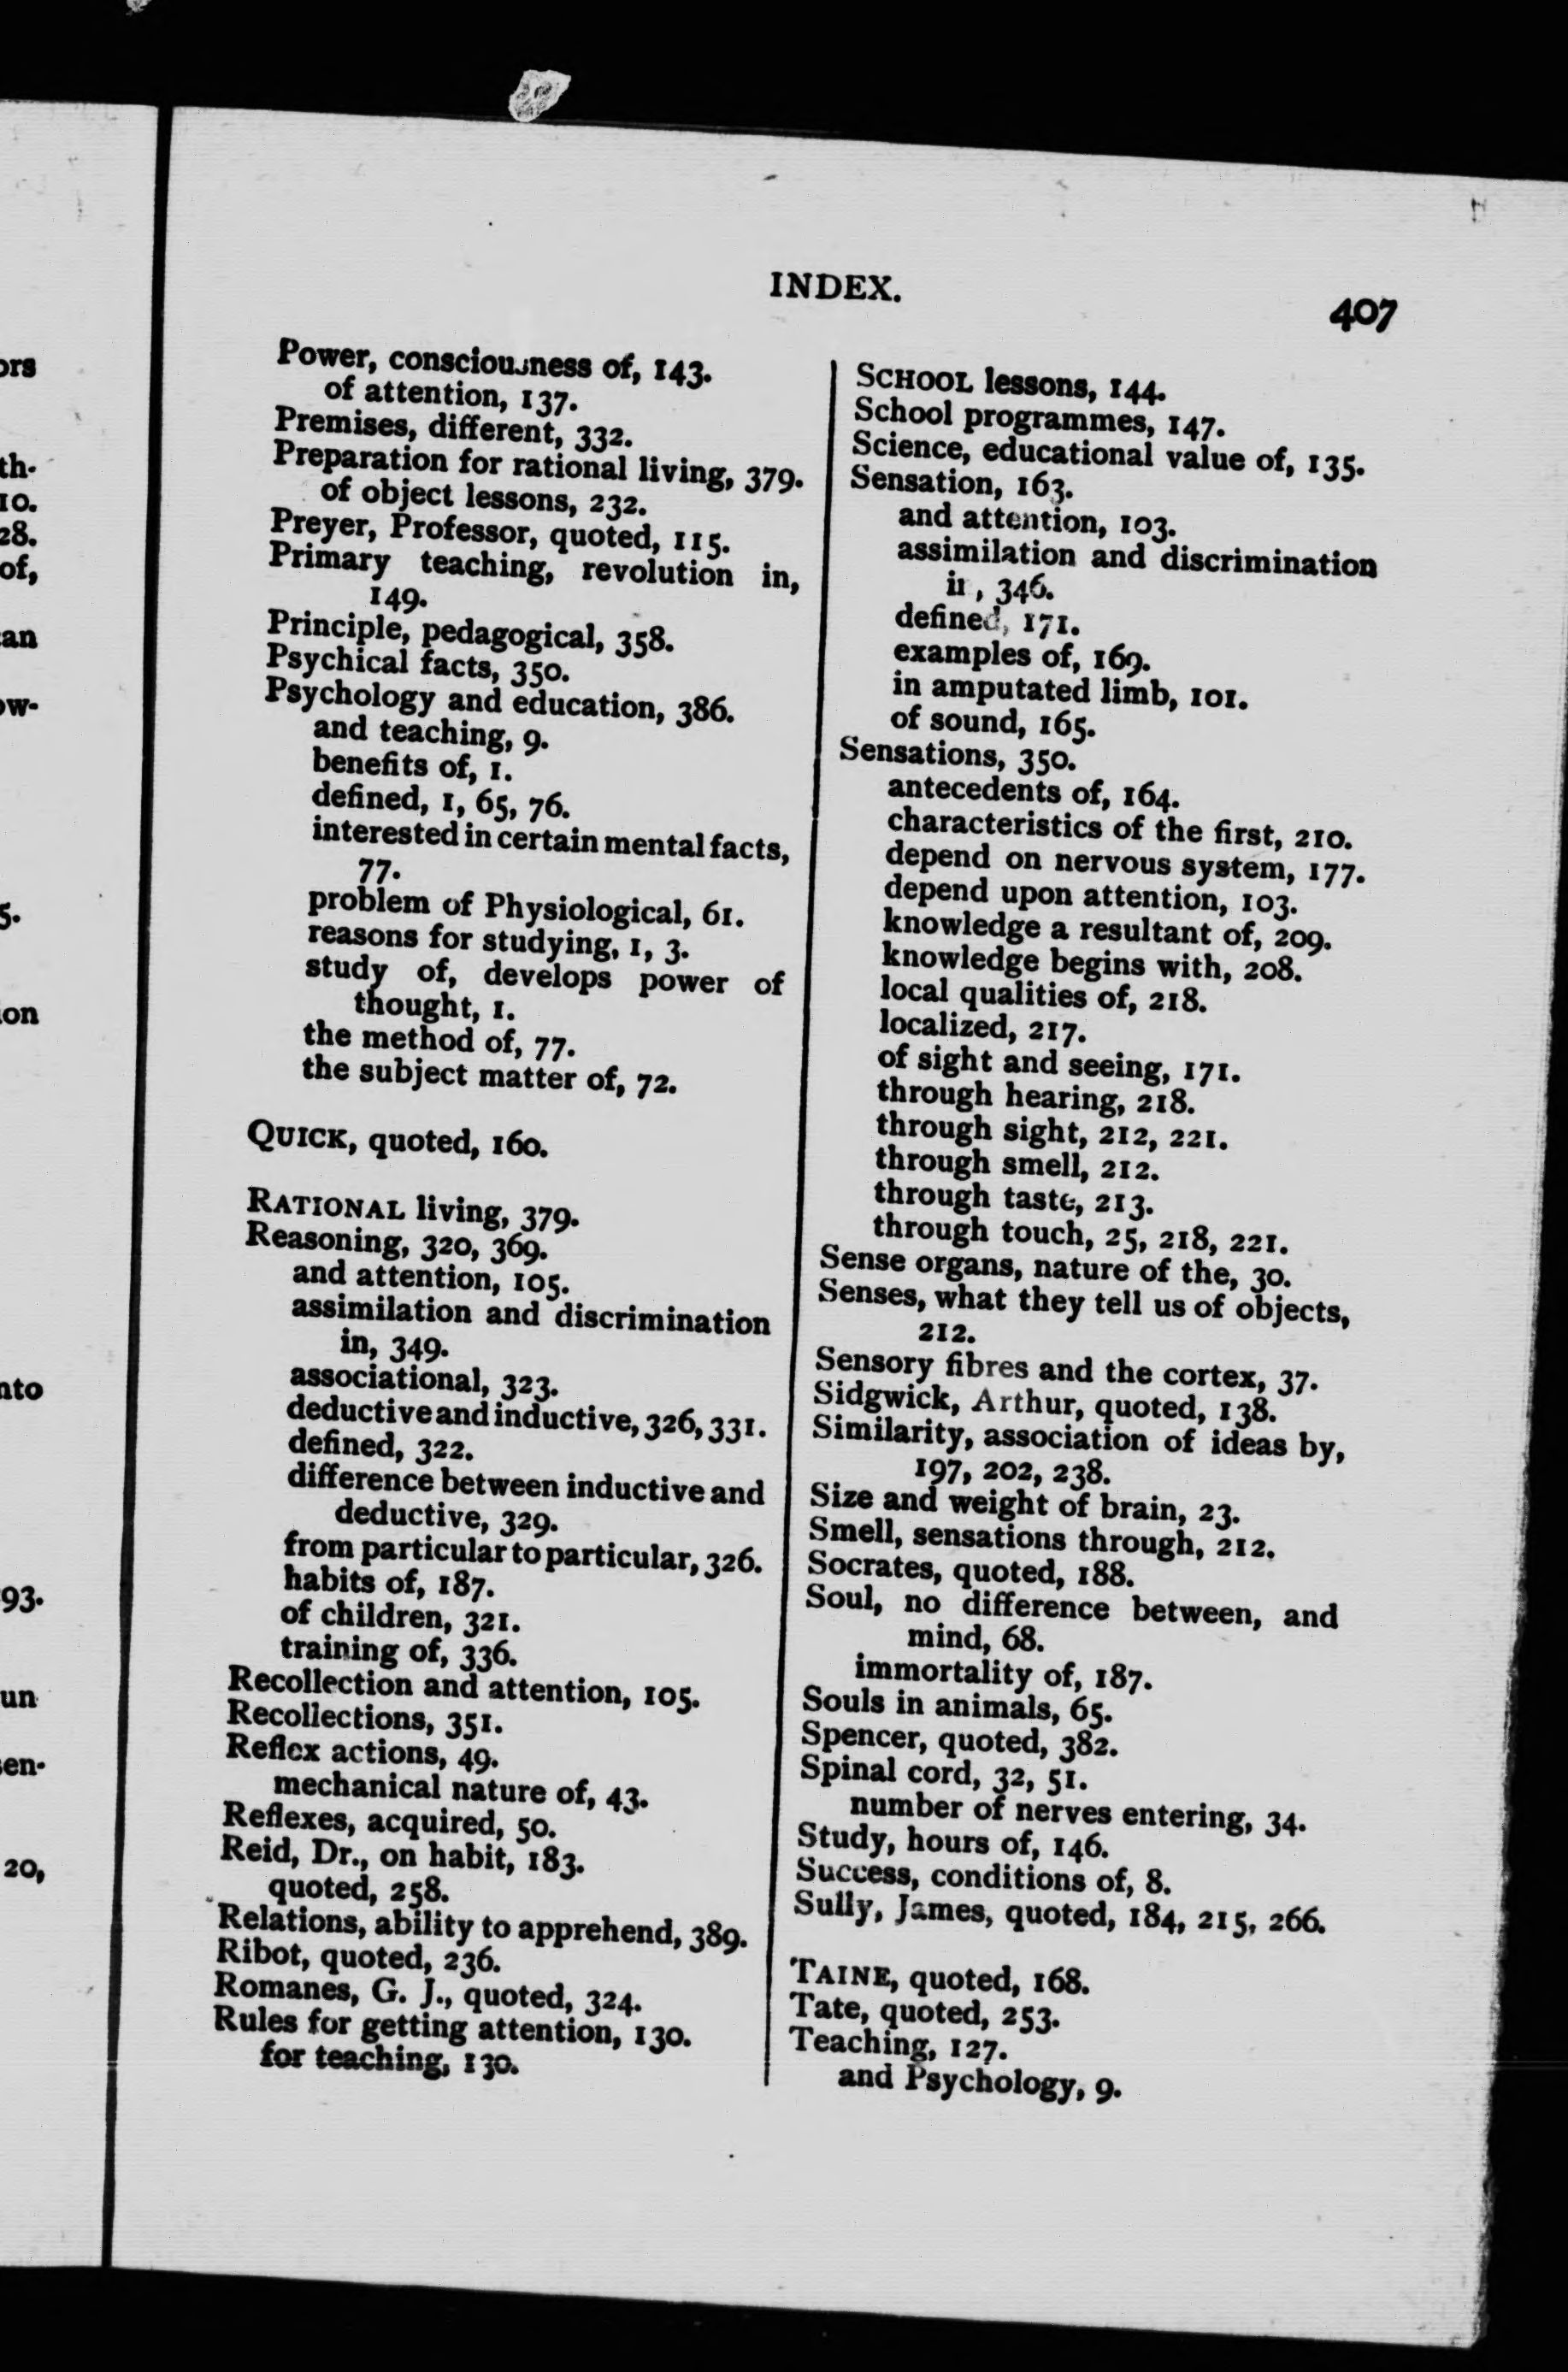 INDEX.
407
Power, consciousness of, 143.
of attention, 137.
Premises, different, 332.
Preparation for rational living, 379.
of object lessons, 232.
Preyer, Professor, quoted, 115.
Primary teaching, revolution in,
149.
Principle, pedagogical, 358.
Psychical facts, 350.
Psychology and education, 386.
and teaching, 9.
benefits of, 1.
defined, 1, 65, 76.
interested in certain mental facts,
77.
problem of Physiological, 61.
reasons for studying, 1, 3.
study of, develops power of
thought, 1.
the method of, 77.
the subject matter of, 72.
QUICK, quoted, 160.
RATIONAL living, 379.
Reasoning, 320, 369.
and attention, 105.
assimilation and discrimination
in, 349.
associational, 323.
deductive and inductive, 326, 331.
defined, 322.
difference between inductive and
deductive, 329.
from particular to particular, 326.
habits of, 187.
of children, 321.
training of, 336.
Recollection and attention, 105.
Recollections, 351.
Reflex actions, 49.
mechanical nature of, 43.
Reflexes, acquired, 50.
Reid, Dr., on habit, 183.
quoted, 258.
Relations, ability to apprehend, 389.
Ribot, quoted, 236.
Romanes, G. J., quoted, 324.
Rules for getting attention, 130.
for teaching, 130.
SCHOOL lessons, 144.
School programmes, 147.
Science, educational value of, 135.
Sensation, 163.
and attention, 103.
assimilation and discrimination
in, 346.
defined, 171.
examples of, 169.
in amputated limb, 101.
of sound, 165.
Sensations, 350.
antecedents of, 164.
characteristics of the first, 210.
depend on nervous system, 177.
depend upon attention, 103.
knowledge a resultant of, 209.
knowledge begins with, 208.
local qualities of, 218.
localized, 217.
of sight and seeing, 171.
through hearing, 218.
through sight, 212, 221.
through smell, 212.
through taste, 213.
through touch, 25, 218, 221.
Sense organs, nature of the, 30.
Senses, what they tell us of objects,
212.
Sensory fibres and the cortex, 37.
Sidgwick, Arthur, quoted, 138.
Similarity, association of ideas by,
197, 202, 238.
Size and weight of brain, 23.
Smell, sensations through, 212.
Socrates, quoted, 188.
Soul, no difference between, and
mind, 68.
immortality of, 187.
Souls in animals, 65.
Spencer, quoted, 382.
Spinal cord, 32, 51.
number of nerves entering, 34.
Study, hours of, 146.
Success, conditions of, 8.
Sully, James, quoted, 184, 215, 266.
TAINE, quoted, 168.
Tate, quoted, 253.
Teaching, 127.
and Psychology, 9.